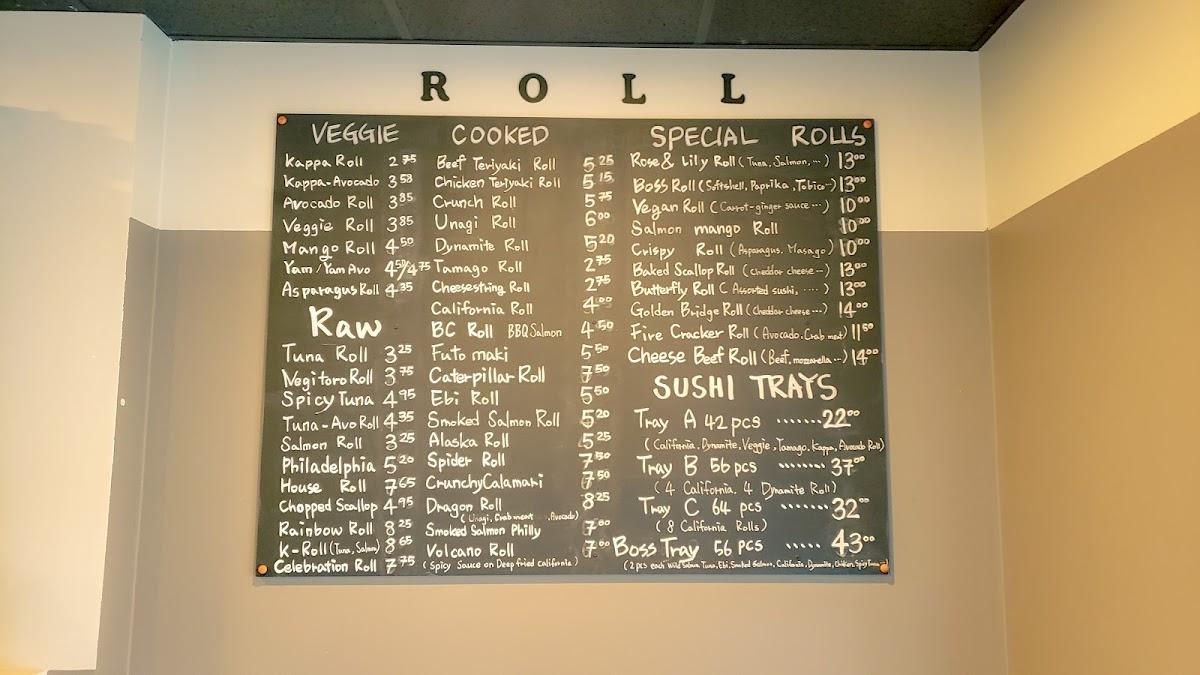 ROLL
VEGGIE
Kappa Roll 2.75
Kappa-Avocado 3.58
Avocado Roll 3.85
Veggie Roll 3.85
Mango Roll 4.50
Yam/Yam Avo 4.50/4.75
Asparagus Roll 4.35
Raw
Tuna Roll 3.25
Negitoro Roll 3.75
Spicy Tuna 4.95
Tuna-Avo Roll 4.35
Salmon Roll 3.25
Philadelphia 5.20
House Roll 7.65
Chopped Scallop 4.95
Rainbow Roll 8.25
K-Roll (Tuna, Salmon) 8.65
Celebration Roll 7.75
COOKED
Beef Teriyaki Roll 5.25
Chicken Teriyaki Roll 5.15
Crunch Roll 5.75
Unagi Roll 6.00
Dynamite Roll 5.20
Tamago Roll 2.75
Cheesestring Roll 2.75
California Roll 4.00
BC Roll BBQ Salmon 4.50
Futo maki 5.50
Caterpillar Roll 7.50
Ebi Roll 5.50
Smoked Salmon Roll 5.20
Alaska Roll 5.25
Spider Roll 7.50
Crunchy Calamari 7.50
Dragon Roll 8.25
(Unagi, Crab meat, Avocado)
Smoked Salmon Philly 7.00
Volcano Roll 7.00
(Spicy Sauce on Deep fried California)
SPECIAL ROLLS
Rose & Lily Roll (Tuna, Salmon, ...) 13.00
Boss Roll (Softshell, Paprika, Tobico--) 13.00
Vegan Roll (Carrot-ginger sauce ...) 10.00
Salmon mango Roll 10.00
Crispy Roll (Asparagus, Masago) 10.00
Baked Scallop Roll (Cheddar cheese--) 13.00
Butterfly Roll (Assorted sushi, ....) 13.00
Golden Bridge Roll (Cheddar cheese...) 14.00
Fire Cracker Roll (Avocado, Crab meat) 11.50
Cheese Beef Roll (Beef, mozzarella...) 14.00
SUSHI TRAYS
Tray A 42 pcs ....... 22.00
(California, Dynamite, Veggie, Tamago, Kappa, Avocado Roll)
Tray B 56 pcs ........ 37.00
(4 California, 4 Dynamite Roll)
Tray C 64 pcs ........ 32.00
(8 California Rolls)
Boss Tray 56 pcs ..... 43.00
(2 pcs each Wild Salmon, Tuna, Ebi, Smoked Salmon, California, Dynamite, Chicken, Spicy Tuna